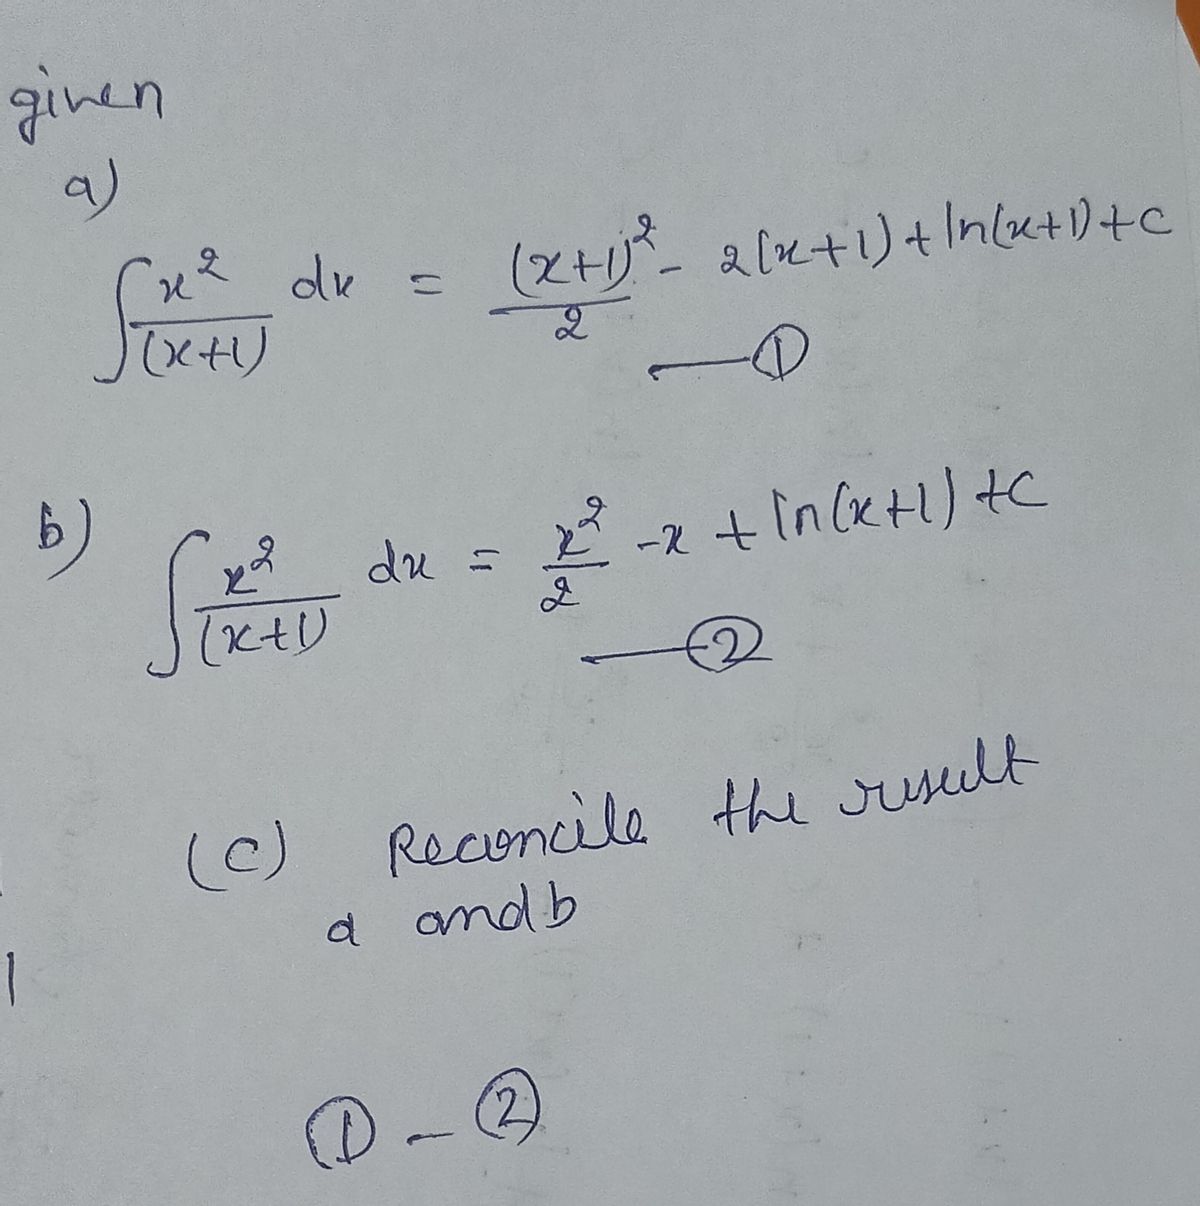 given
a)
∫ x²/(x+1) dx = (x+1)²/2 - 2(x+1) + ln(x+1) + c
—①
b) ∫ x²/(x+1) dx = x²/2 - x + ln(x+1) + c
—②
(c) Reconcile the result
a and b
① - ②